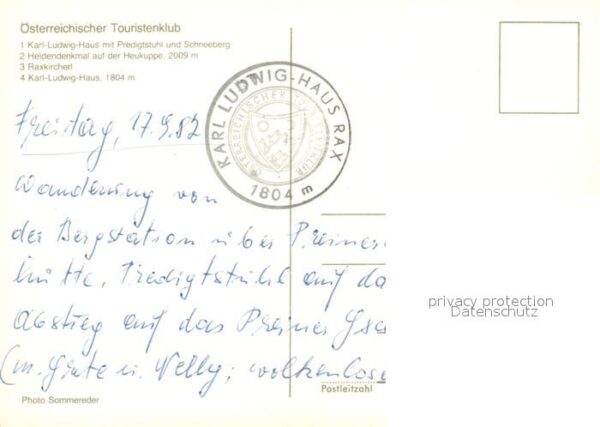 Österreichischer Touristenklub
1 Karl-Ludwig-Haus mit Predigtstuhl und Schneeberg
2 Heldendenkmal auf der Heukuppe, 2009 m
3 Raxkircherl
4 Karl-Ludwig-Haus, 1804 m
KARL LUDWIG-HAUS RAX
ÖSTERREICHISCHER TOURISTENKLUB
1804 m
Freitag, 17.9.82
Wanderung von
der Bergstation über Preiner
hütte, Predigtstuhl auf da
Abstieg auf das Preiner Gsc
(m. Grete u. Nelly; wolkenlose
privacy protection
Datenschutz
Postleitzahl
Photo Sommereder